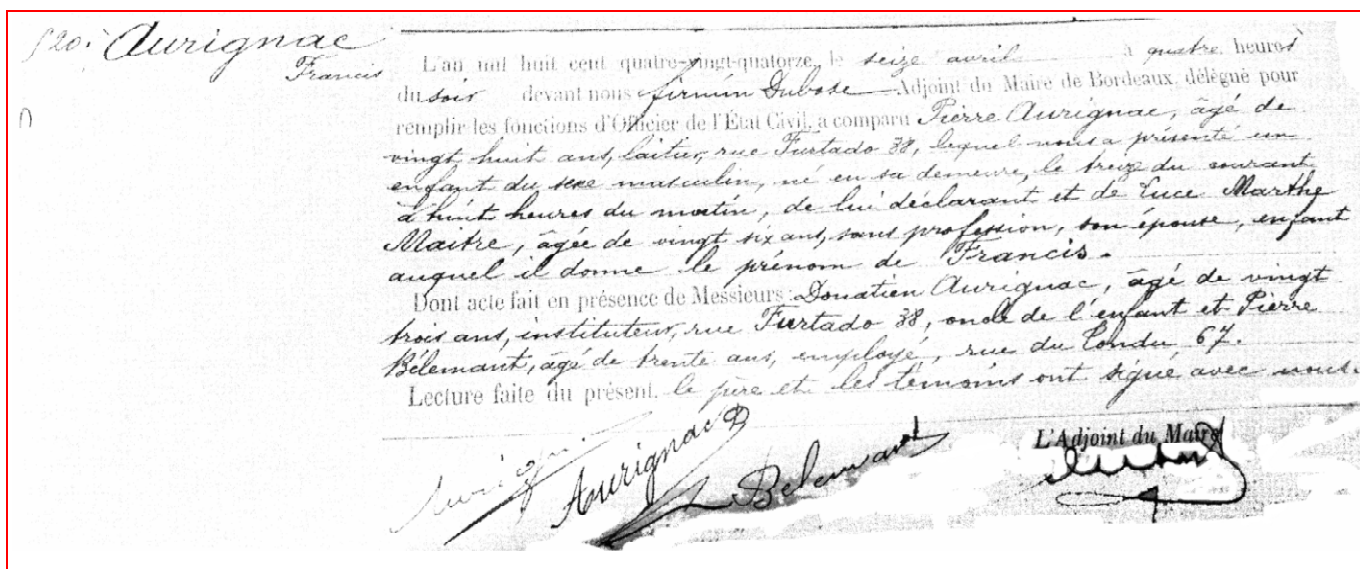 520. Aurignac
Francis
L'an mil huit cent quatre-vingt-quatorze, le seize avril à quatre heures
du soir devant nous Firmin Dubosc Adjoint du Maire de Bordeaux, délégué pour
remplir les fonctions d'Officier de l'État Civil, a comparu Pierre Aurignac, âgé de
vingt huit ans, laitier, rue Furtado 38, lequel nous a présenté un
enfant du sexe masculin, né en sa demeure, le treize du courant
à huit heures du matin, de lui déclarant et de Luce Marthe
Maitre, âgée de vingt six ans, sans profession, son épouse, enfant
auquel il donne le prénom de Francis.
Dont acte fait en présence de Messieurs : Donatien Aurignac, âgé de vingt
trois ans, instituteur, rue Furtado 38, oncle de l'enfant et Pierre
Bélemant, âgé de trente ans, employé, rue du Tondu 67.
Lecture faite du présent, le père et les témoins ont signé avec nous.
L'Adjoint du Maire
Aurignac Belemant